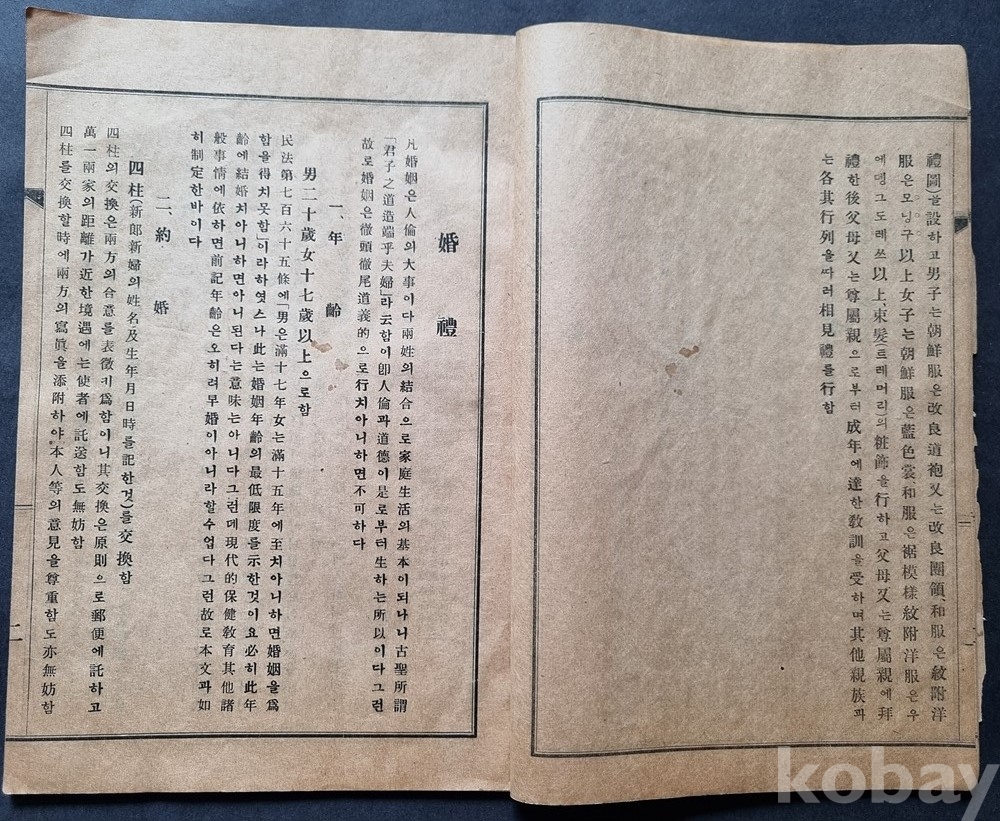 禮圖)을設하고男子는朝鮮服은改良道袍又는改良團領、和服은紋附洋
服은모닝구以上女子는朝鮮服은藍色裳、和服은裾模樣紋附洋服은우
에뎅그도레쓰以上、束髮(트레머리)의粧飾을行하고父母又는尊屬親에拜
禮한後父母又는尊屬親으로부터成年에達한敎訓을受하며其他親族과
는各其行列을따러相見禮를行함
婚禮
凡婚姻은人倫의大事이다兩姓의結合으로家庭生活의基本이되나니古聖所謂
「君子之道造端乎夫婦」라云함이卽人倫과道德이是로부터生하는所以이다그런
故로婚姻은徹頭徹尾道義的으로行치아니하면不可하다
一、年齡
男二十歲女十七歲以上으로함
民法第七百六十五條에「男은滿十七年女는滿十五年에至치아니하면婚姻을爲
함을得치못함」이라하엿스나此는婚姻年齡의最低限度를示한것이요必히此年
齡에結婚치아니하면아니된다는意味는아니다그런데現代的保健敎育其他諸
般事情에依하면前記年齡은오히려早婚이아니라할수업다그런故로本文과如
히制定한바이다
二、約婚
四柱(新郞新婦의姓名及生年月日時를記한것)를交換함
四柱의交換은兩方의合意를表徵키爲함이니其交換은原則으로郵便에託하고
萬一兩家의距離가近한境遇에는使者에託送함도無妨함
四柱를交換할時에兩方의寫眞을添附하야本人等의意見을尊重함도亦無妨함
二
kobay